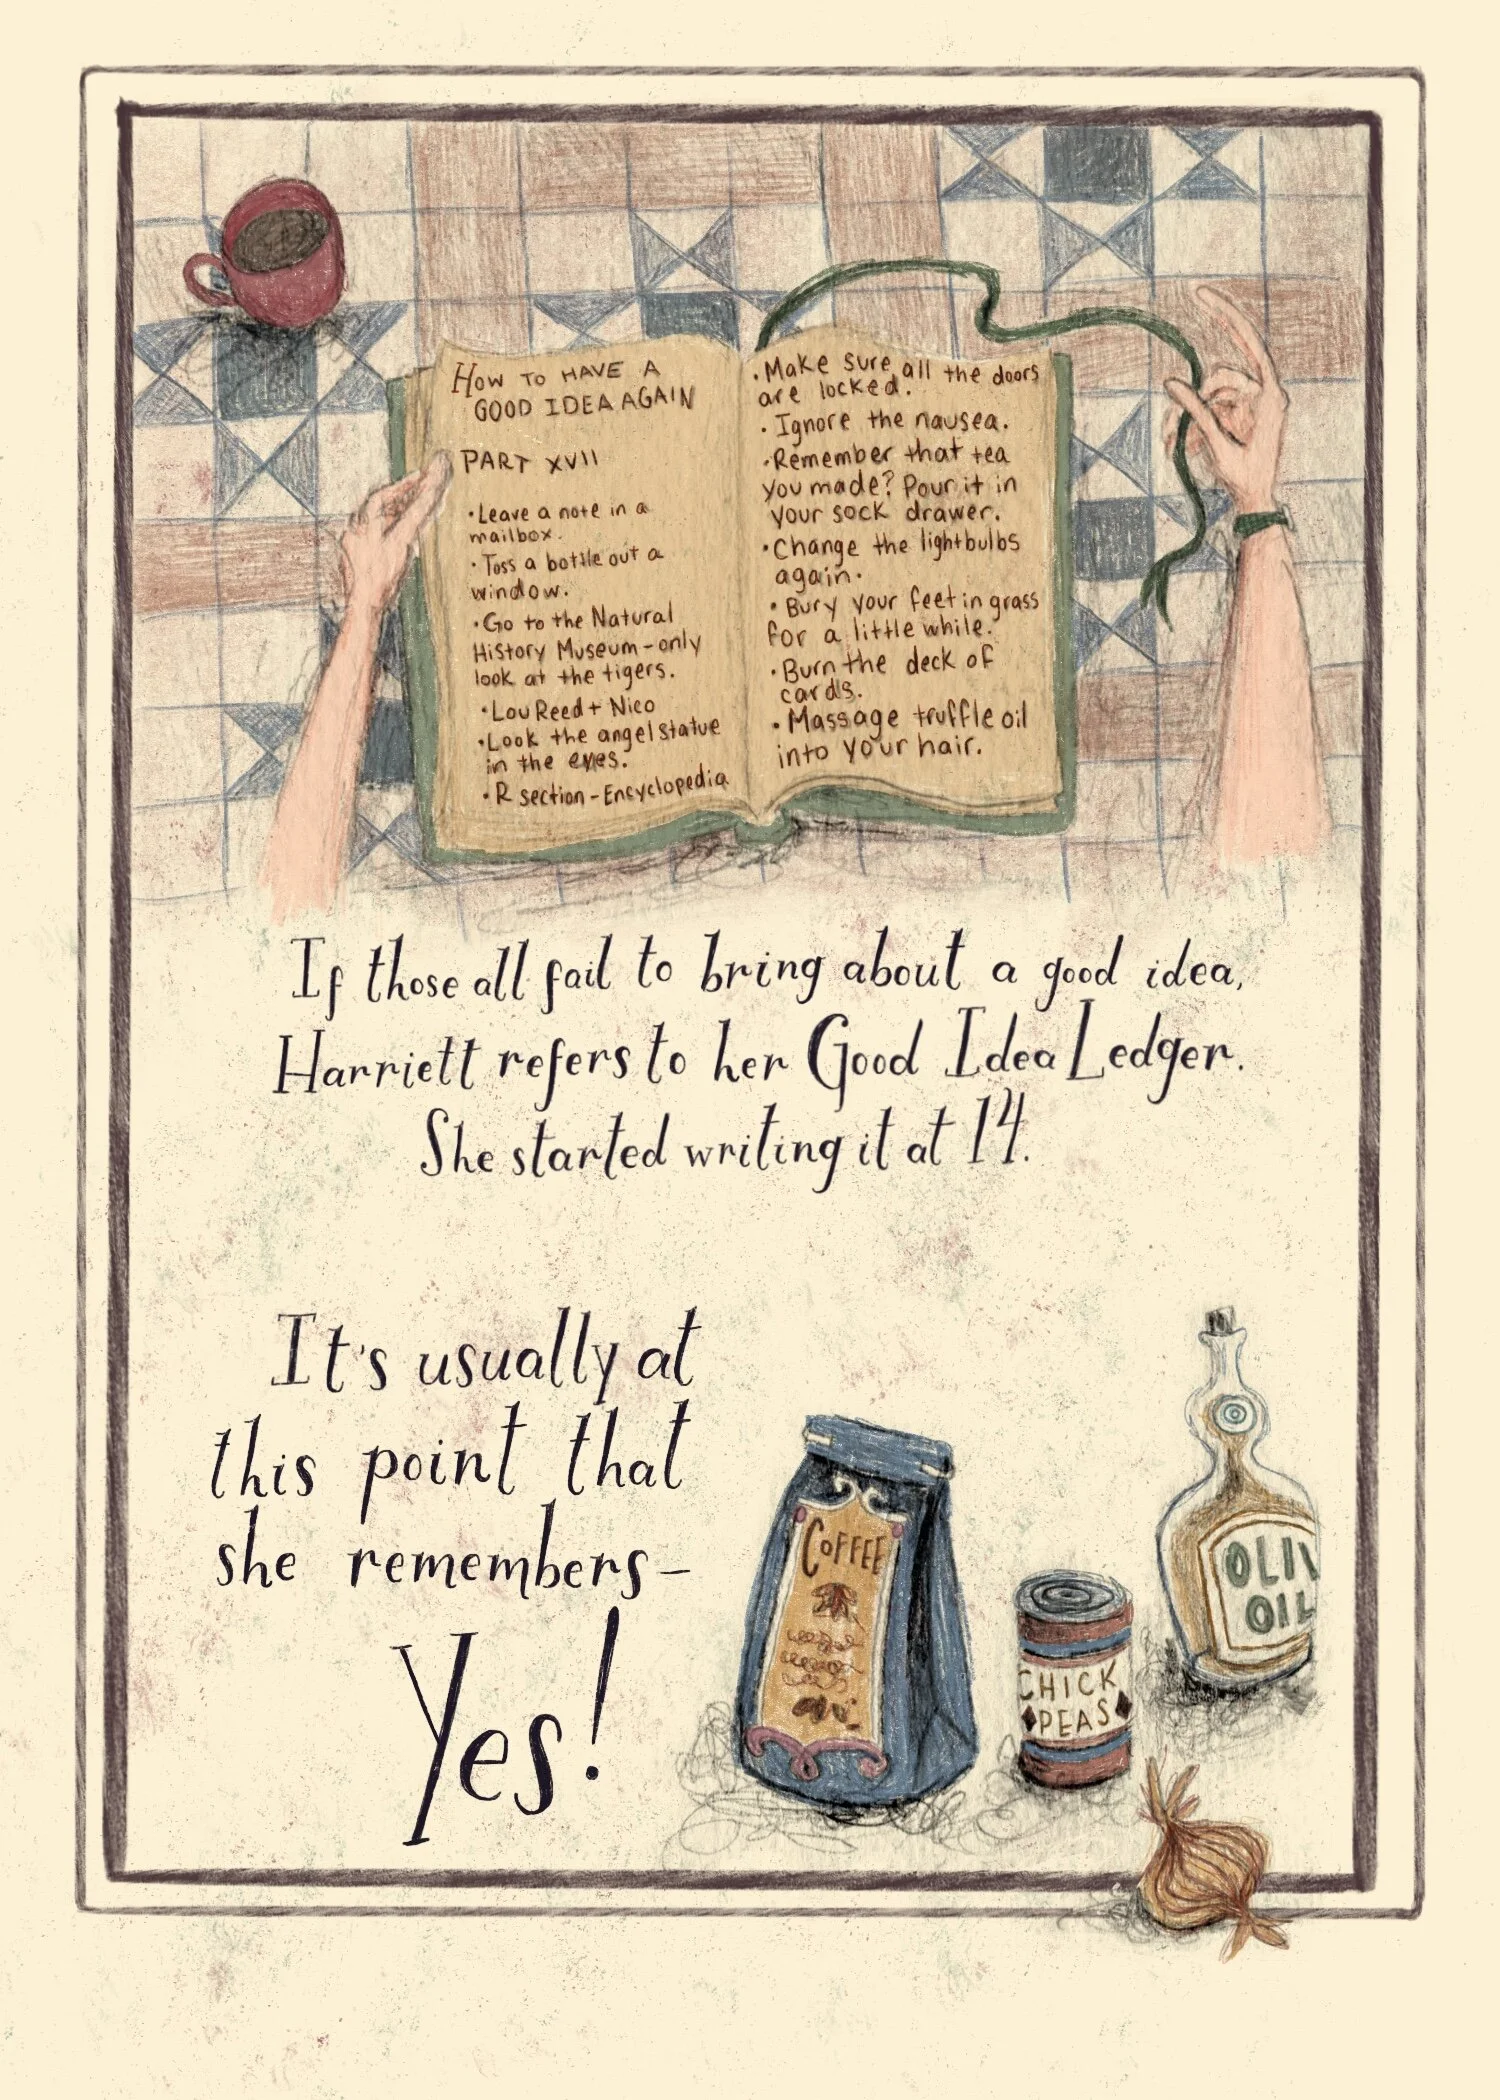 How TO HAVE A
GOOD IDEA AGAIN
PART XVII
•Leave a note in a
mailbox.
•Toss a bottle out a
window.
•Go to the Natural
History Museum-only
look at the tigers.
•Lou Reed + Nico
•Look the angel statue
in the eyes.
•R section-Encyclopedia
•Make sure all the doors
are locked.
•Ignore the nausea.
•Remember that tea
you made? Pour it in
your sock drawer.
•Change the lightbulbs
again.
•Bury your feet in grass
for a little while.
•Burn the deck of
cards.
•Massage truffle oil
into your hair.
If those all fail to bring about a good idea,
Harriett refers to her Good Idea Ledger.
She started writing it at 14.
It's usually at
this point that
she remembers-
Yes!
COFFEE
CHICK
PEAS
OLIV
OIL